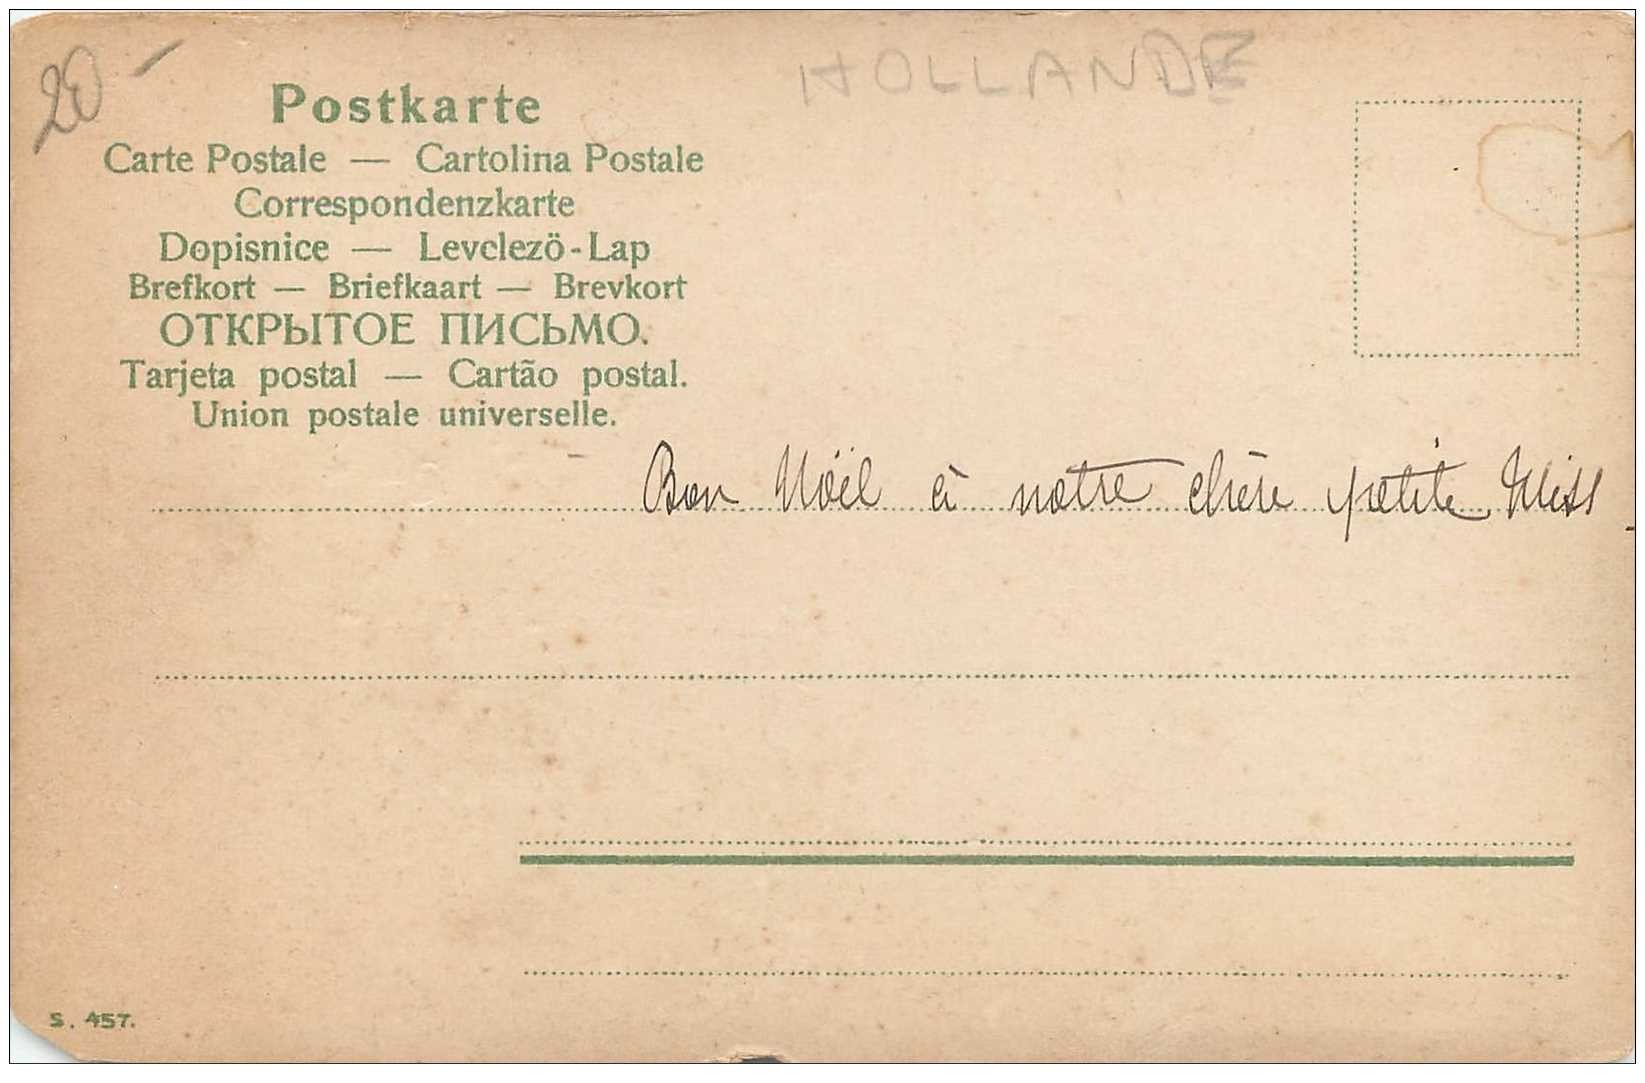 20 -
HOLLANDE
Postkarte
Carte Postale — Cartolina Postale
Correspondenzkarte
Dopisnice — Levelezö-Lap
Brefkort — Briefkaart — Brevkort
ОТКРЫТОЕ ПИСЬМО.
Tarjeta postal — Cartão postal.
Union postale universelle.
Bon Nöël à notre chère petite Miss
S. 457.